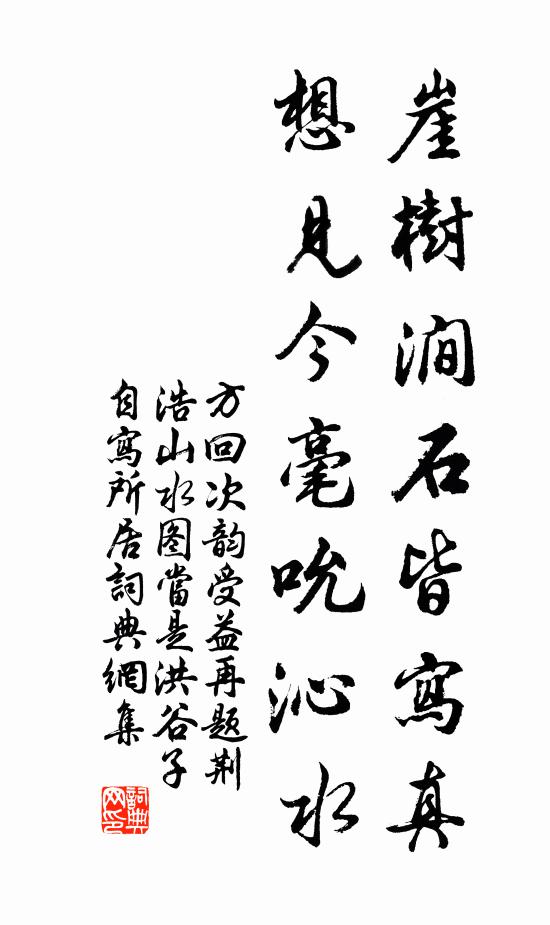 崖樹澗石皆寫真
想見今毫吮沁水
方回次韵受益再題荆
浩山水图當是洪谷子
自寫所居詞典網集
詞典网印